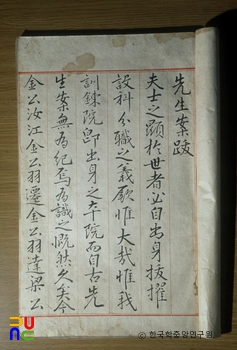 先生案跋
夫士之顯於世者必自出身拔擢
設科分職之義厥惟大哉惟我
訓鍊院卽出身之本院而自古先
生案無為紀焉為識之慨然久矣今
金公汝江金公羽遷金公羽達梁公
© 한국학중앙연구원